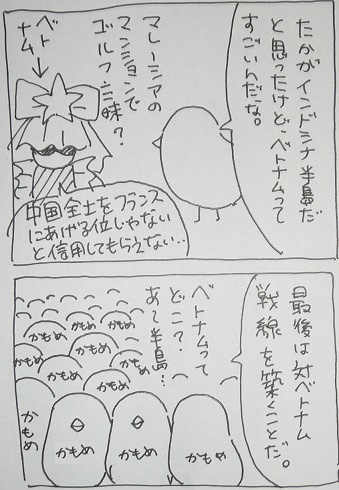 たかがインドシナ半島だ
と思ったけど、ベトナムって
すごいんだな。
マレーシアの
マンションで
ゴルフ三昧？
ベト
ナム
中国全土をフランス
にあげる位じゃない
と信用してもらえない…
最後は対ベトナム
戦線を築くことだ。
ベトナムって
どこ？
あ〜半島…
かもめ
かもめ
かもめ
かもめ
かもめ
かもめ
かもめ
かもめ
かもめ
かもめ
かもめ